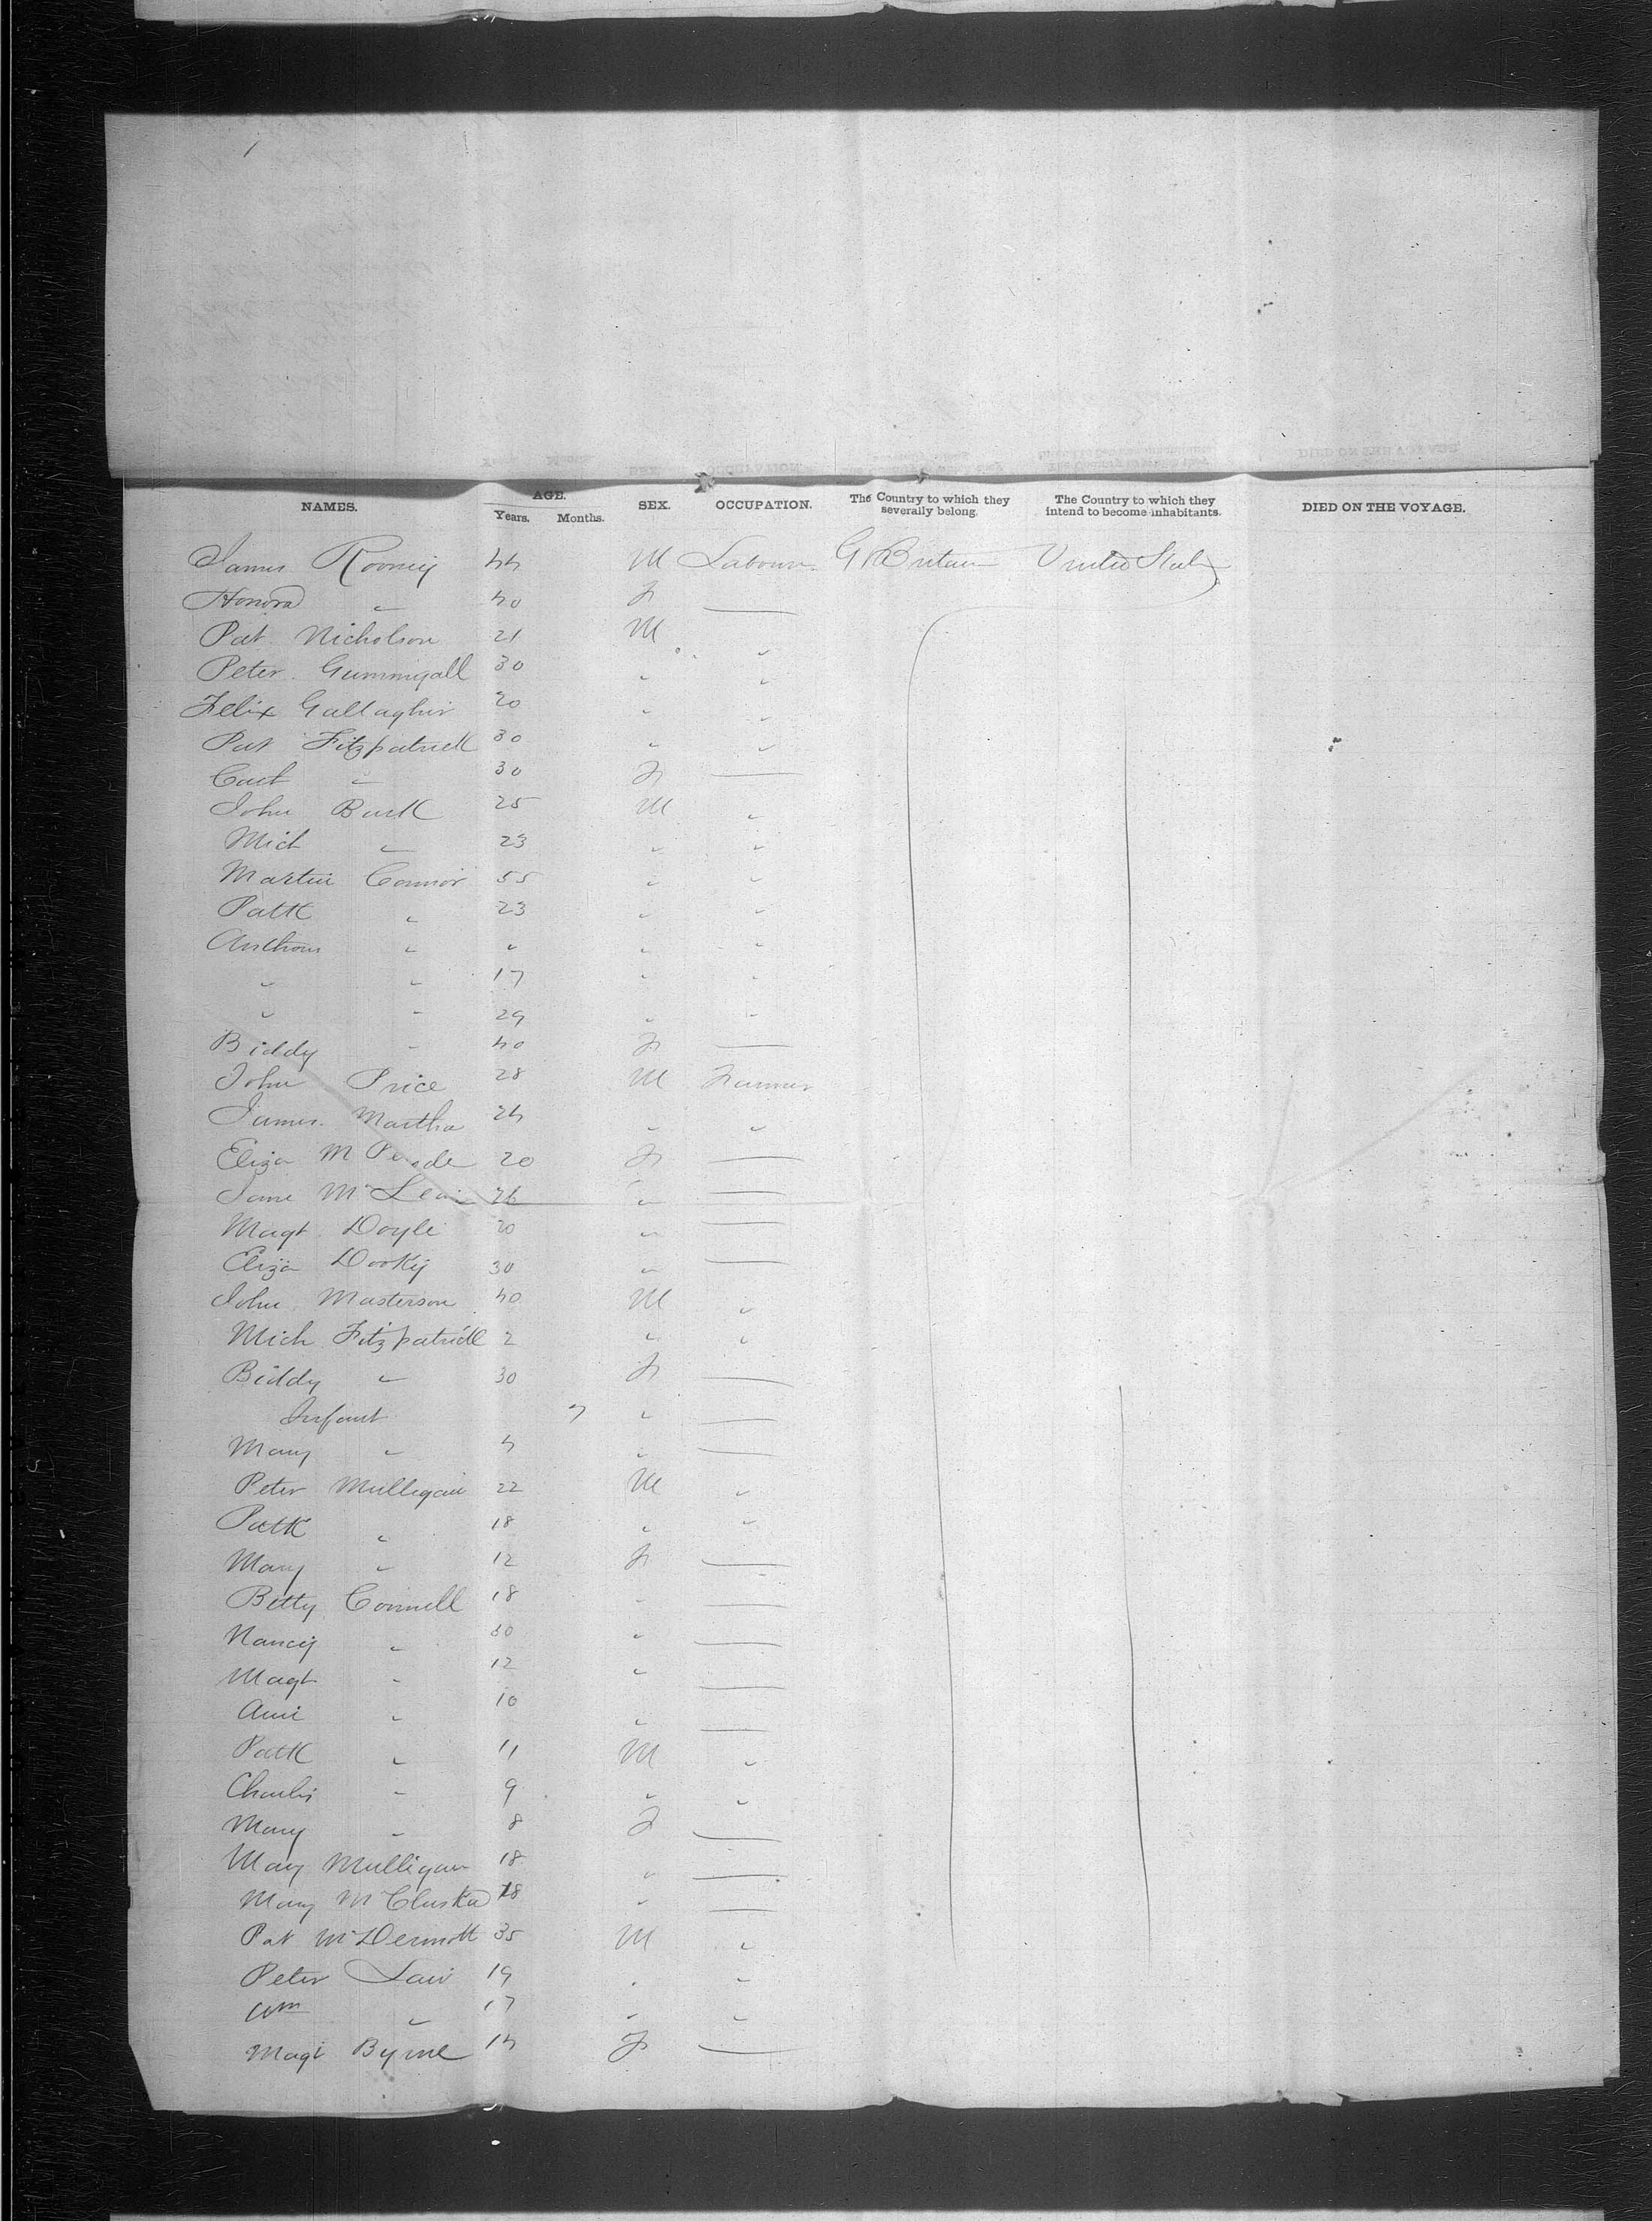 NAMES. AGE. Years. Months. SEX. OCCUPATION. The Country to which they severally belong. The Country to which they intend to become inhabitants. DIED ON THE VOYAGE.
James Rooney 44 M Labourer Gt Britain United States
Honora " 40 F —
Pat Nicholson 21 M "
Peter Gummigall 30 " "
Felix Gallagher 20 " "
Pat Fitzpatrick 30 " "
Cath " 30 F —
John Burk 25 M "
Mich " 23 " "
Martin Connor 55 " "
Patk " 23 " "
Anthony " " " "
" " 17 " "
" " 29 " "
Biddy " 40 F —
John Price 28 M Farmer
James Martha 24 " "
Eliza M 20 F —
Jane McLean 26 " —
Magt Doyle 20 " —
Eliza Dooky 30 " —
John Masterson 40 M "
Mich Fitzpatrick 2 " "
Biddy " 30 F —
Infant 7 " —
Mary " 4 " —
Peter Mulligan 22 M "
Patk " 18 " "
Mary " 12 F —
Betty Connell 18 " —
Nancy " 30 " —
Magt " 12 " —
Ann " 10 " —
Patk " 11 M "
Charles " 9 " "
Mary " 8 F —
Mary Mulligan 18 " —
Mary McCluska 18 " —
Pat McDermott 35 M "
Peter Law 19 " "
Wm " 17 " "
Magt Byrne 14 F —